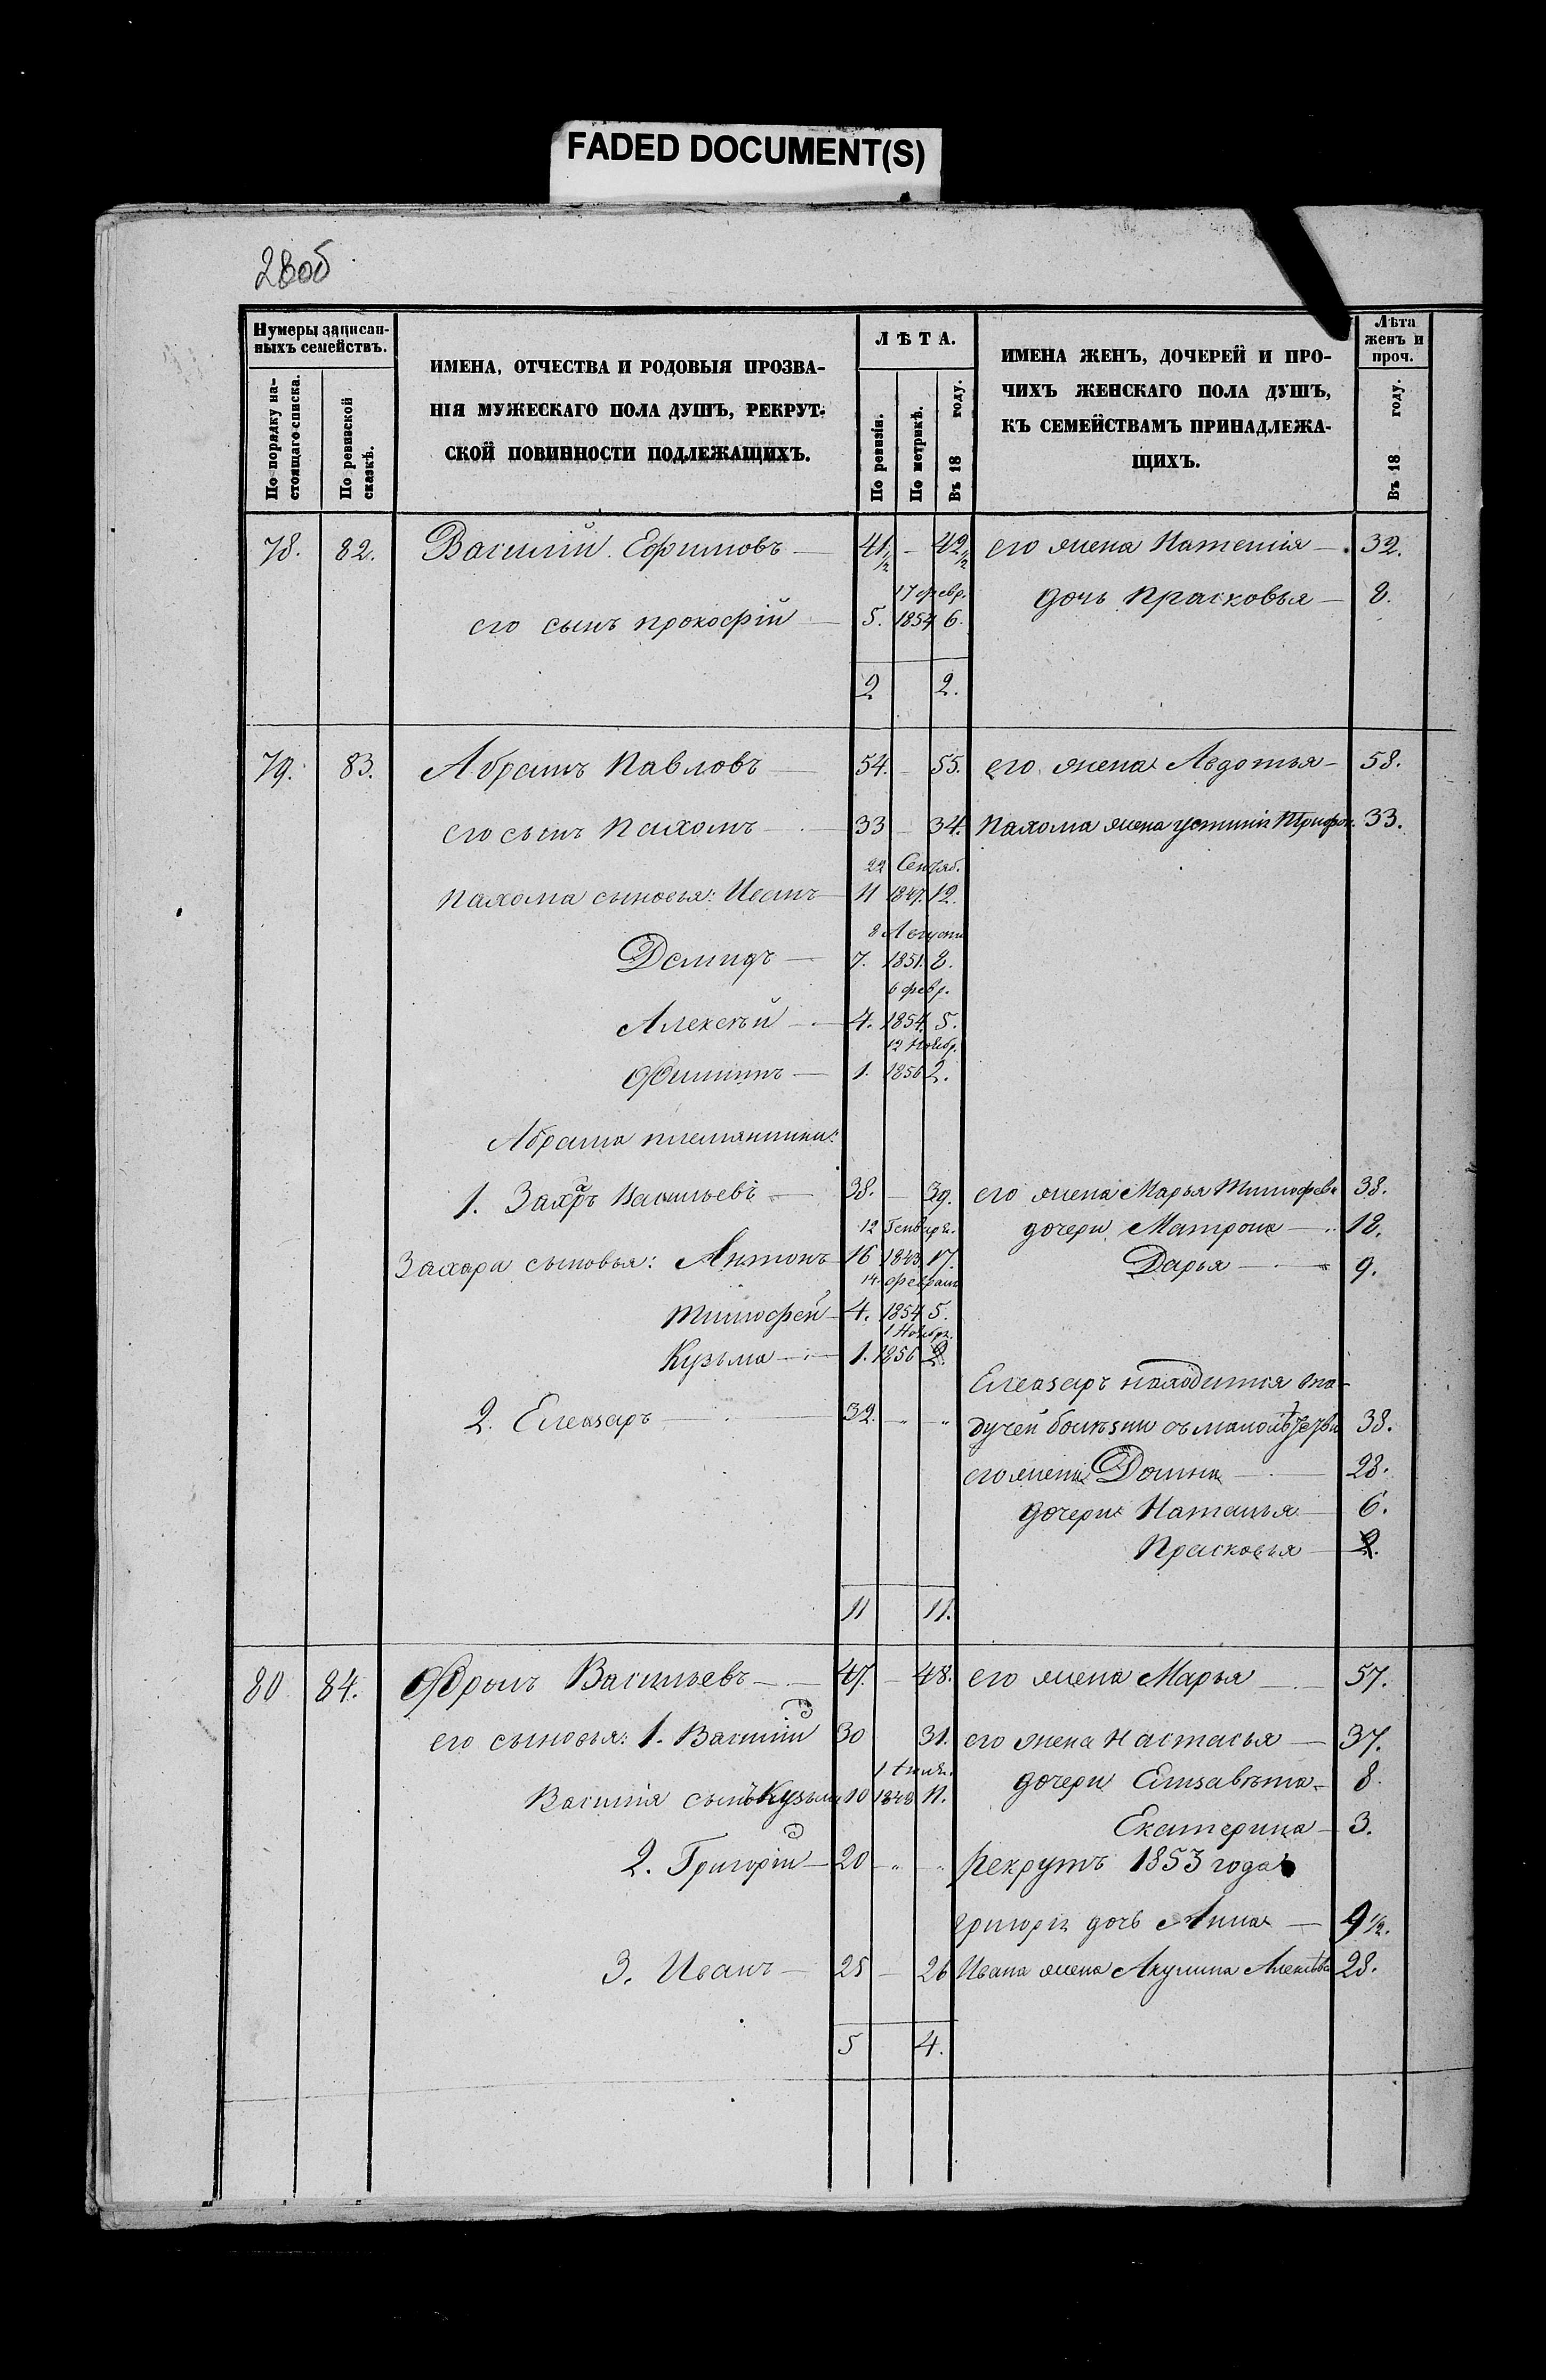 FADED DOCUMENT(S)
28об
Нумеры записан-
ныхъ семействъ.
По порядку на-
стоящаго списка.
По ревизской
сказкѣ.
ИМЕНА, ОТЧЕСТВА И РОДОВЫЯ ПРОЗВА-
НІЯ МУЖЕСКАГО ПОЛА ДУШЪ, РЕКРУТ-
СКОЙ ПОВИННОСТИ ПОДЛЕЖАЩИХЪ.
ЛѢТА.
По ревизіи.
По метрикѣ.
Въ 18 году.
ИМЕНА ЖЕНЪ, ДОЧЕРЕЙ И ПРО-
ЧИХЪ ЖЕНСКАГО ПОЛА ДУШЪ,
КЪ СЕМЕЙСТВАМЪ ПРИНАДЛЕЖА-
ЩИХЪ.
Лѣта
женъ и
проч.
Въ 18 году.
78. 82. Василій Ефимовъ — 41 1/2 — 42 1/2 его жена — 32.
17 февр. дочь Прасковья — 8.
его сынъ Прокофій — 5. 1854 6.
2 2.
79. 83. Абрамъ Павловъ — 54. — 55. его жена Авдотья — 58.
его сынъ Пахомъ — 33 — 34. Пахома жена Устинія 33.
22 Сентяб.
Пахома сыновья: Иванъ — 11 1847. 12.
8 Августа
Демидъ — 7. 1851. 8.
6 февр.
Алексѣй — 4. 1854. 5.
12 Ноябр.
Филипъ — 1. 1856 2.
Абрама племянники:
1. Захаръ Васильевъ — 38. — 39. его жена Марья Тимофева 38.
12 Генваря. дочери Матрона — 18.
Захара сыновья: Антонъ 16 1843. 17. Дарья — 9.
14. февраля
Тимофей — 4. 1854 5.
1 Ноябр.
Кузьма — 1. 1856 2.
Елеазаръ находится
2. Елеазаръ — 32. „ — „ дучей болѣзни съ 38.
его жена Домна — 28.
дочери Наталья — 6.
Прасковья — 2.
11 11.
80 84. Фролъ Васильевъ — 47. — 48. его жена Марья — 57.
его сыновья: 1. Василій 30 31. его жена Настасья — 37.
дочери Елизавѣта — 8.
Василія сынъ Кузьма 10 1848 11.
Екатерина — 3.
2. Григорій — 20 — „ — „ рекрутъ 1853 года
Григорія дочь Анна — 9 1/2.
3. Иванъ — 25 — 26 Ивана жена Акулина 28.
5 4.